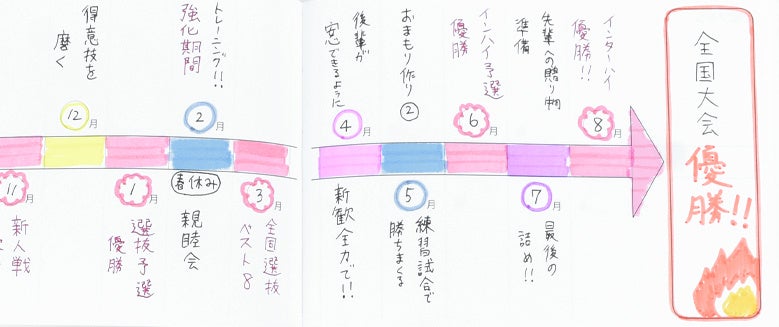 得意技を
磨く
12月
トレーニング!!
強化期間
2月
11月
新人戦
1月
選抜予選
優勝
春休み
親睦会
3月
全国選抜
ベスト8
後輩が
安心できるように
4月
おまもり作り
②
インハイ予選
優勝
6月
先輩への贈り物
準備
インターハイ
優勝!!
8月
新歓全力で!!
5月
練習試合で
勝ちまくる
7月
最後の
詰め!!
全国大会
優勝!!